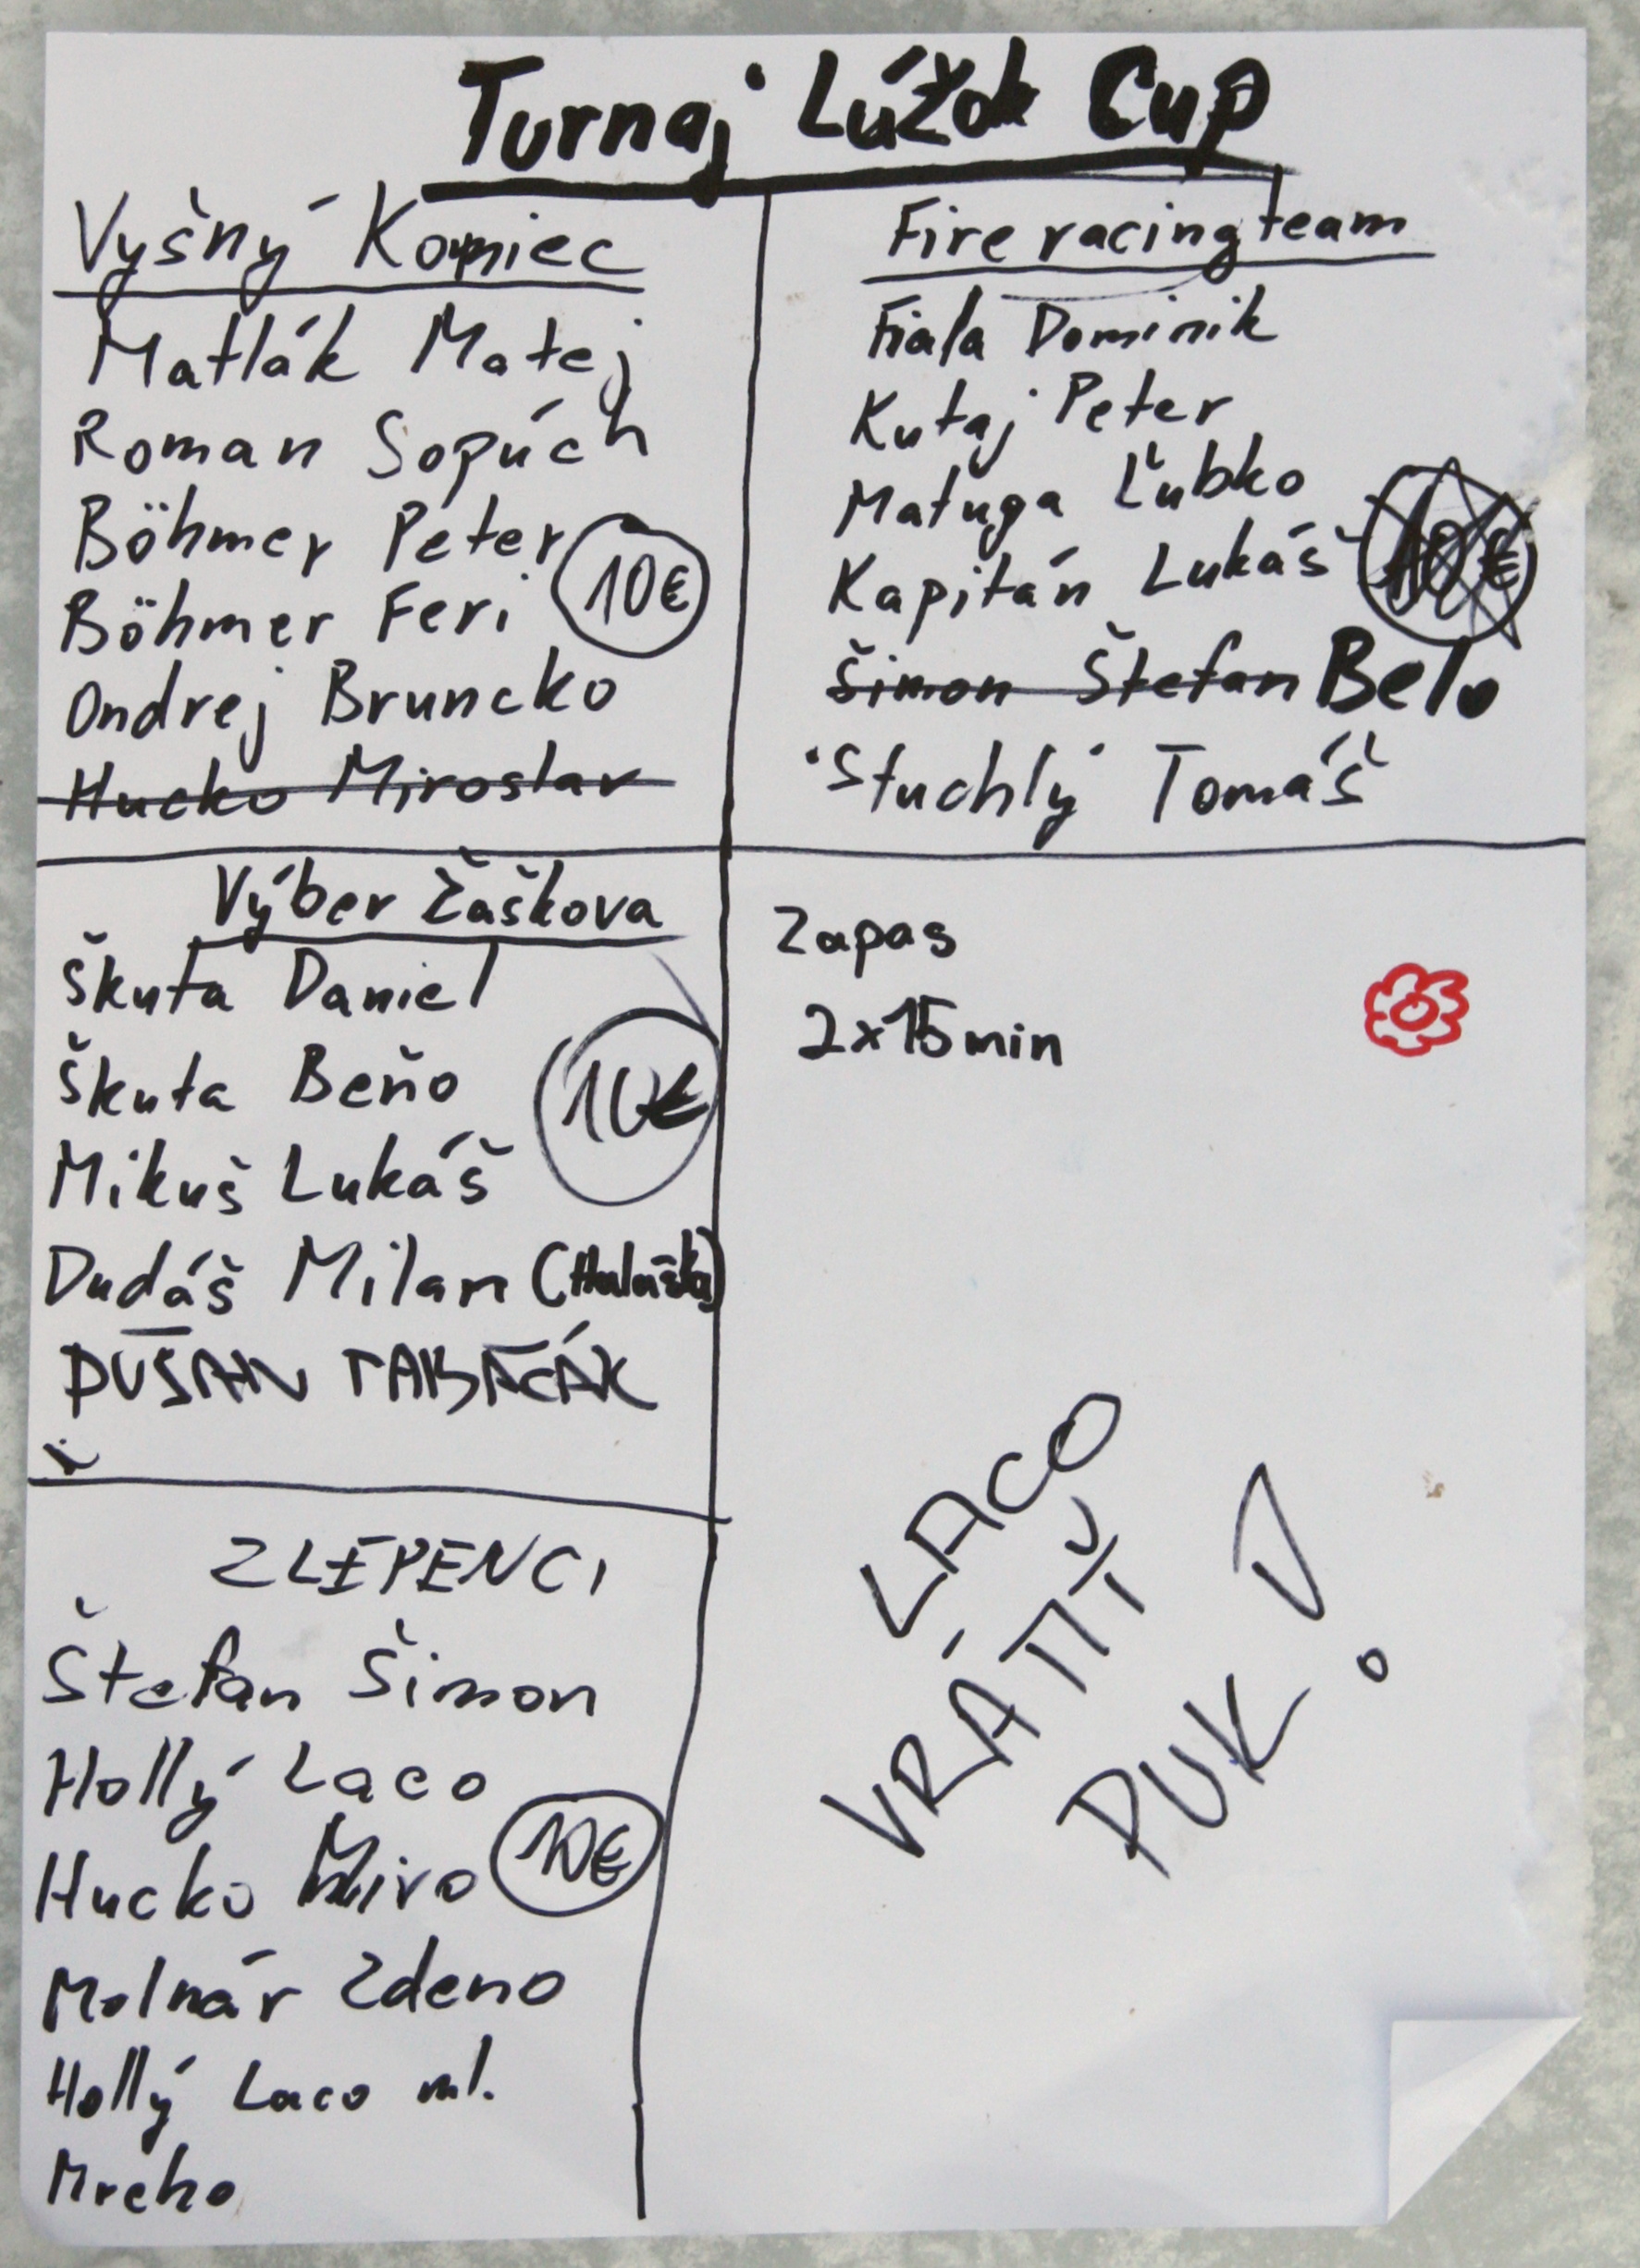 Turnaj Lúžok Cup
Vyšný Koniec
Matlák Matej
Roman Sopúch
Böhmer Peter
10€
Böhmer Feri
Ondrej Bruncko
Hucko Miroslav
Fire racing team
Fiala Dominik
Kutaj Peter
Matuga Ľubko
Kapitán Lukáš
10€
Šimon Štefan Belo
Stuchlý Tomáš
Výber Žaškova
Škuta Daniel
Škuta Beňo
10€
Mikuš Lukáš
Dudáš Milan (Haluška)
DUŠAN TABAČÁK
Zapas
2x15min
ZLEPENCI
Štefan Šimon
Hollý Laco
Hucko Miro
10€
Molnár Zdeno
Hollý Laco ml.
Mreho
LACO
VRÁTIŤ
PUK!